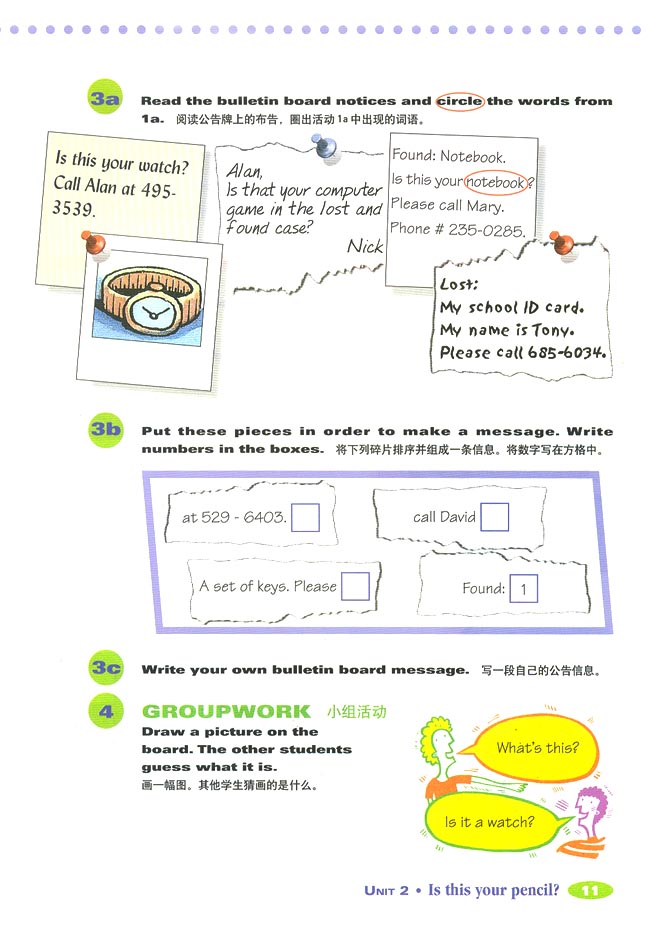 3a
Read the bulletin board notices and circle the words from
1a. 阅读公告牌上的布告，圈出活动 1a 中出现的词语。
Is this your watch?
Call Alan at 495-
3539.
Alan,
Is that your computer
game in the lost and
found case?
Nick
Found: Notebook.
Is this your notebook?
Please call Mary.
Phone # 235-0285.
Lost:
My school ID card.
My name is Tony.
Please call 685-6034.
3b
Put these pieces in order to make a message. Write
numbers in the boxes. 将下列碎片排序并组成一条信息。将数字写在方格中。
at 529 - 6403.
call David
A set of keys. Please
Found: 1
3c
Write your own bulletin board message. 写一段自己的公告信息。
4
GROUPWORK 小组活动
Draw a picture on the
board. The other students
guess what it is.
画一幅图。其他学生猜画的是什么。
What's this?
Is it a watch?
UNIT 2 • Is this your pencil? 11